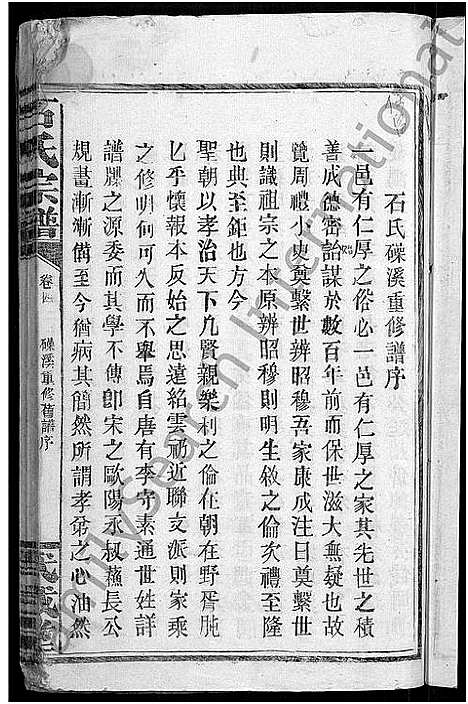 石氏磲溪重修譜序
一邑有仁厚之俗必一邑有仁厚之家其先世之積
善成德密詒謀於數百年前而保世滋大無疑也故
覽周禮小史奠繫世辨昭穆吾家康成注曰奠繫世
則識祖宗之本原辨昭穆則明生敘之倫次禮至隆
也典至鉅也方今
聖朝以孝治天下凡賢親樂利之倫在朝在野胥肫
乚乎懷報本反始之思遠紹雲礽近聯支派則家乘
之修明何可久而不舉焉自唐有李守素通世姓詳
譜牒之源委而其學不傳卽宋之歐陽永叔蘇長公
規畫漸漸備至今猶病其簡然所謂孝弟之心油然
石氏宗譜
卷四
磲溪重修舊譜序
FamilySearch International